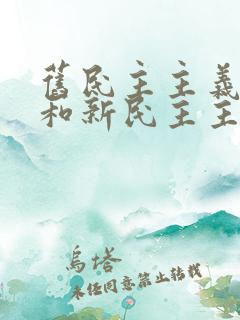 舊民主主義
和新民主主
烏塔
未經同意禁止轉載